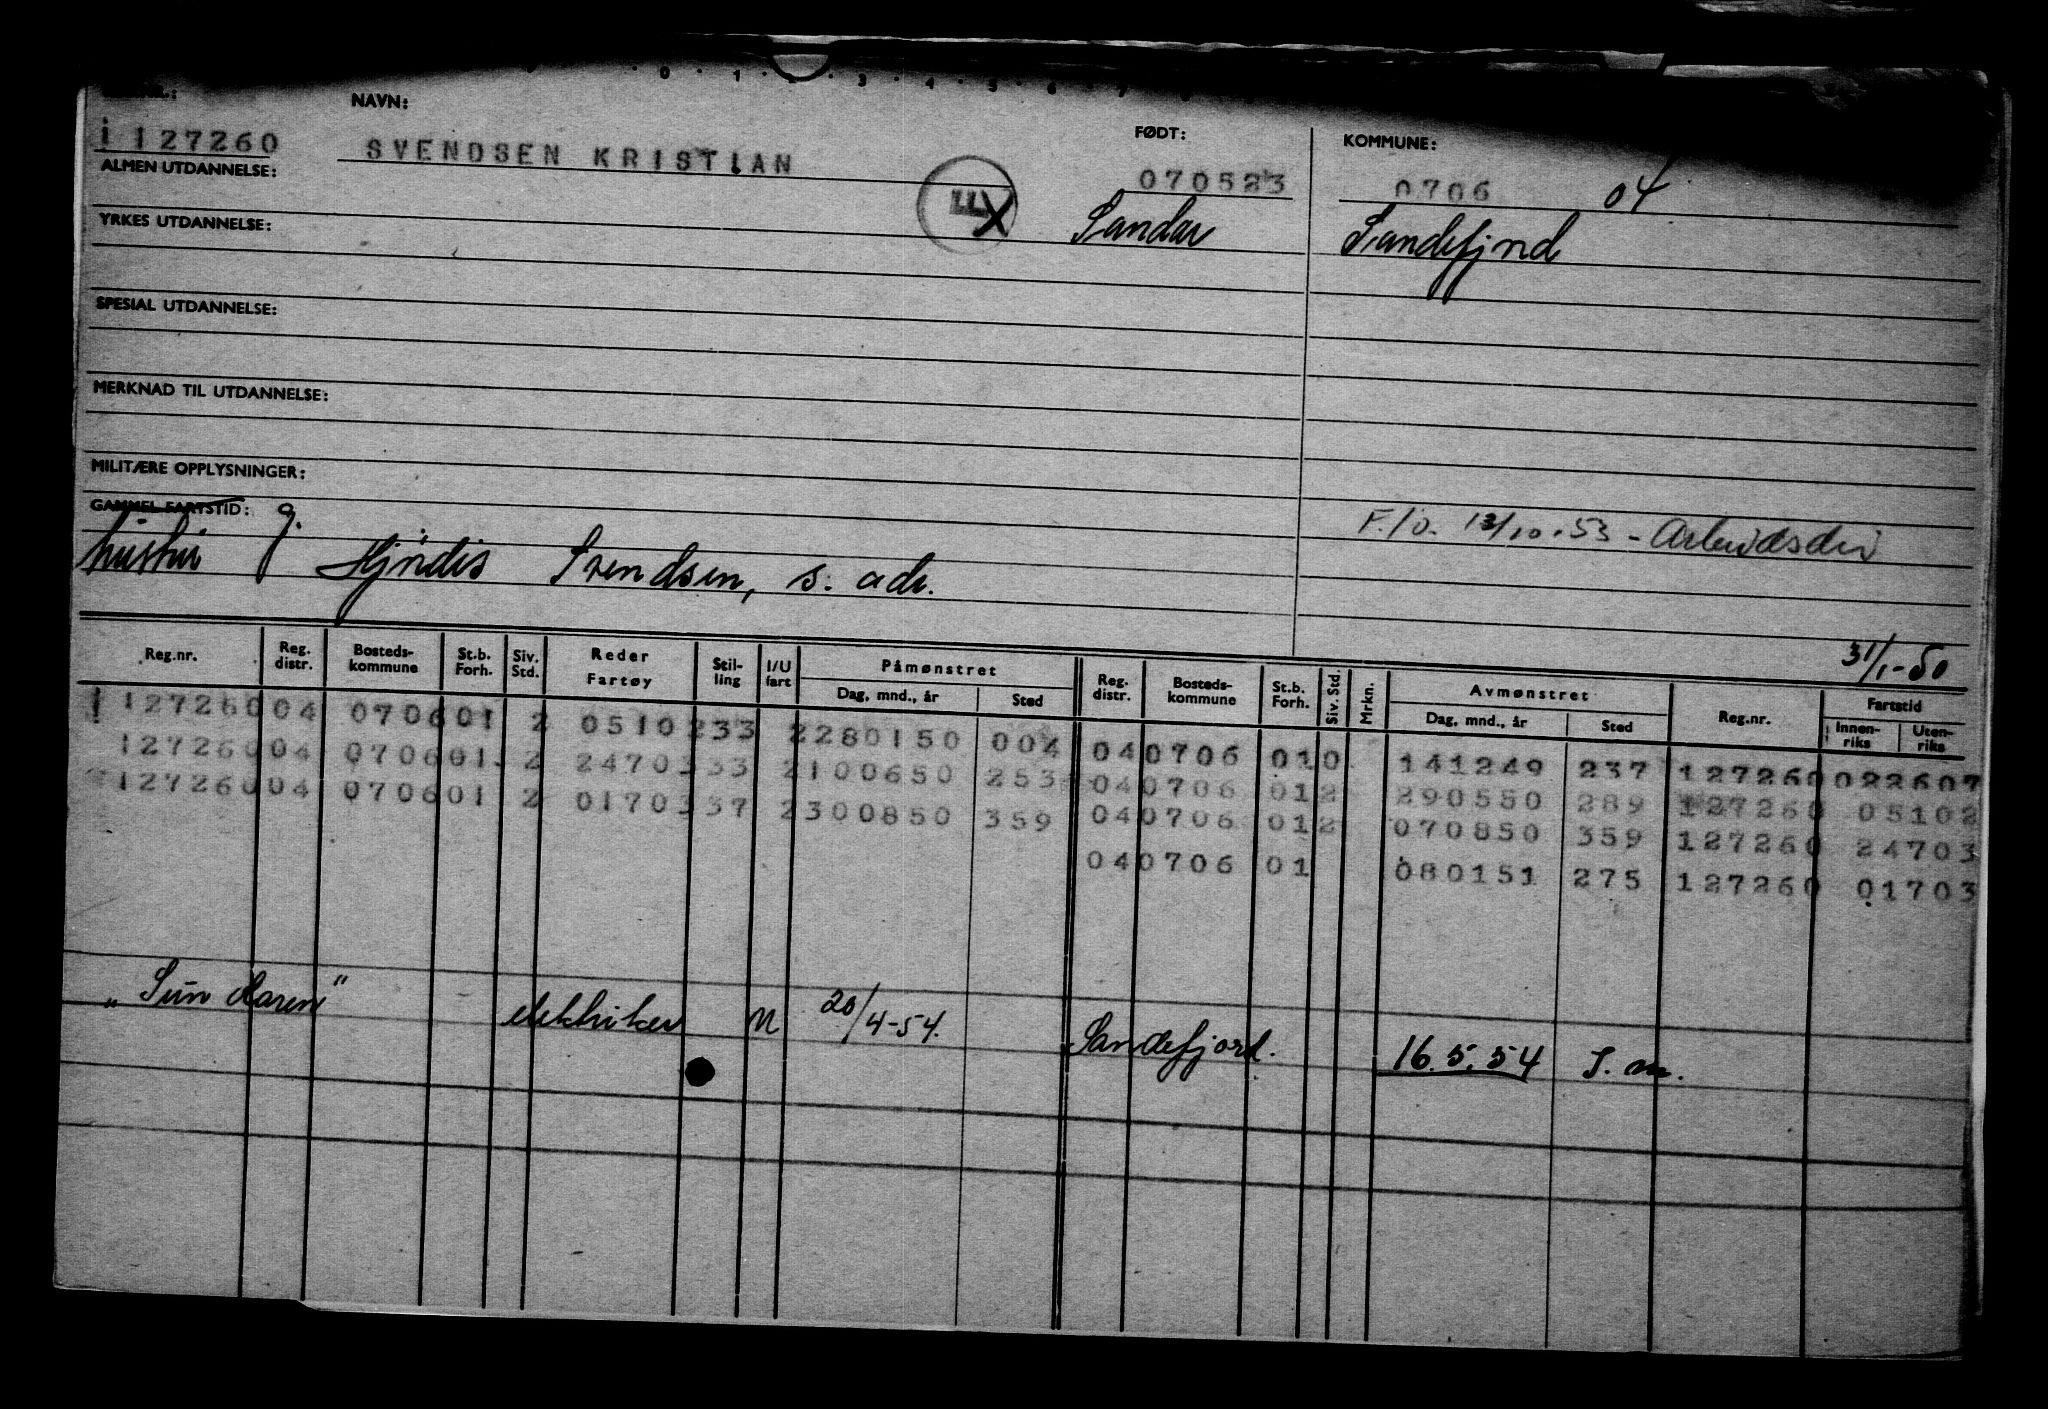 0 . 1 . 2 . 3 . 4 . 5 . 6 . 7
NAVN: FØDT: KOMMUNE:
i 127260 SVENDSEN KRISTIAN 070523 0706 04
ALMEN UTDANNELSE:
Sandar Sandefjord
YRKES UTDANNELSE:
SPESIAL UTDANNELSE:
MERKNAD TIL UTDANNELSE:
MILITÆRE OPPLYSNINGER:
GAMMEL FARTSTID: g.
F./o. 13/10.53 - Arbeidsdir
hustru Hjördis Svendsen, s. adr.
31/1-50
Reg.nr. Reg. distr. Bosteds-kommune St.b. Forh. Siv. Std. Reder Fartøy Stil-ling I/U fart Påmønstret Dag, mnd., år Sted Reg. distr. Bosteds-kommune St.b. Forh. Siv. Std. Mrkn. Avmønstret Dag, mnd., år Sted Reg.nr. Fartstid Innen-riks Uten-riks
127260 04 0706 01 2 0510 233 2 280150 004 04 0706 01 0 141249 237 127260 022607
127260 04 0706 01 2 2470 333 2 100650 253 04 0706 01 2 290550 289 127260 05102
127260 04 0706 01 2 0170 337 2 300850 359 04 0706 01 2 070850 359 127260 24703
04 0706 01 080151 275 127260 01703
„Sun Karen" elektriker U 20/4-54. Sandefjord. 16.5.54 S.m.